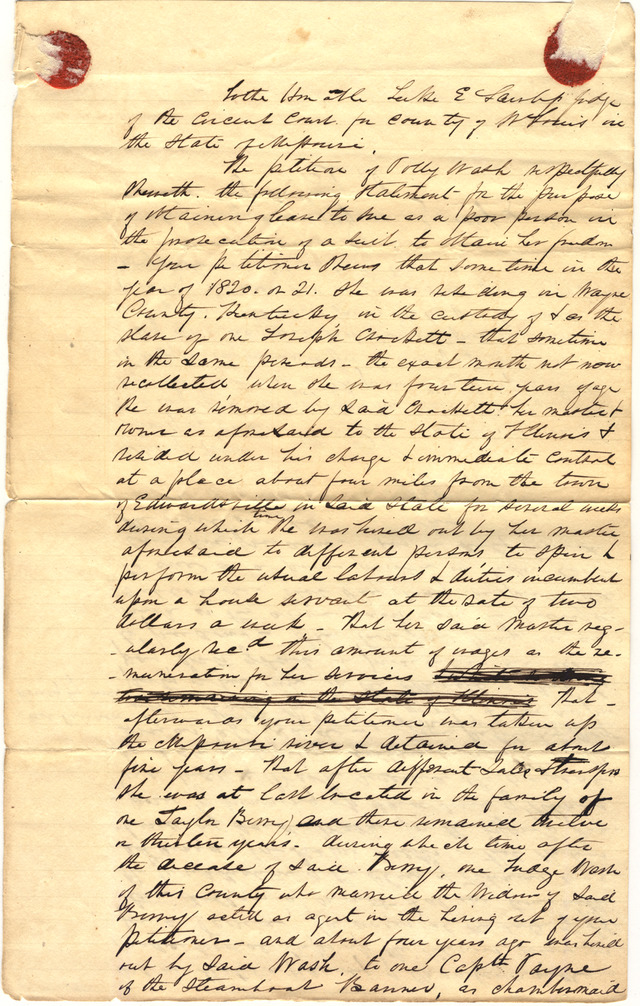 To the Honable Luke E Lawless judge
of the Circuit Court for County of St Louis in
the State of Missouri.
The petition of Polly Wash respectfully
sheweth the following statement for the purpose
of obtaining leave to sue as a poor person in
the prosecution of a suit to obtain her freedom
- Your petitioner shews that some time in the
year of 1820. or 21. She was residing in Wayne
County. Kentucky in the custody of & as the
slave of one Joseph Crockett - that sometime
in the same periods - the exact month not now
recollected when she was fourteen years of age
she was removed by said Crockett her master &
owner as aforesaid to the State of Illinois &
resided under his charge & immediate control
at a place about four miles from the town
of Edwardsville in said State for several weeks
during which time she was hired out by her master
aforesaid to different persons to spin &
perform the usual labours & duties incumbent
upon a house servant at the rate of two
dollars a week - that her said master reg-
-ularly recd this amount of wages as the re-
-muneration for her services
remaining in the State of Illinois That -
afterwards your petitioner was taken up
the Missouri river & detained for about
five years - that after different sales & transfers
she was at last located in the family of
one Taylor Berry and there remained twelve
or thirteen years - during which time after
the decease of said Berry, one Judge Wash
of this County who married the Widow of said
Berry acted as agent in the hiring out of your
petitioner - and about four years ago was hired
out by said Wash, to one Capth Payne
of the Steamboat Banner, as chambermaid